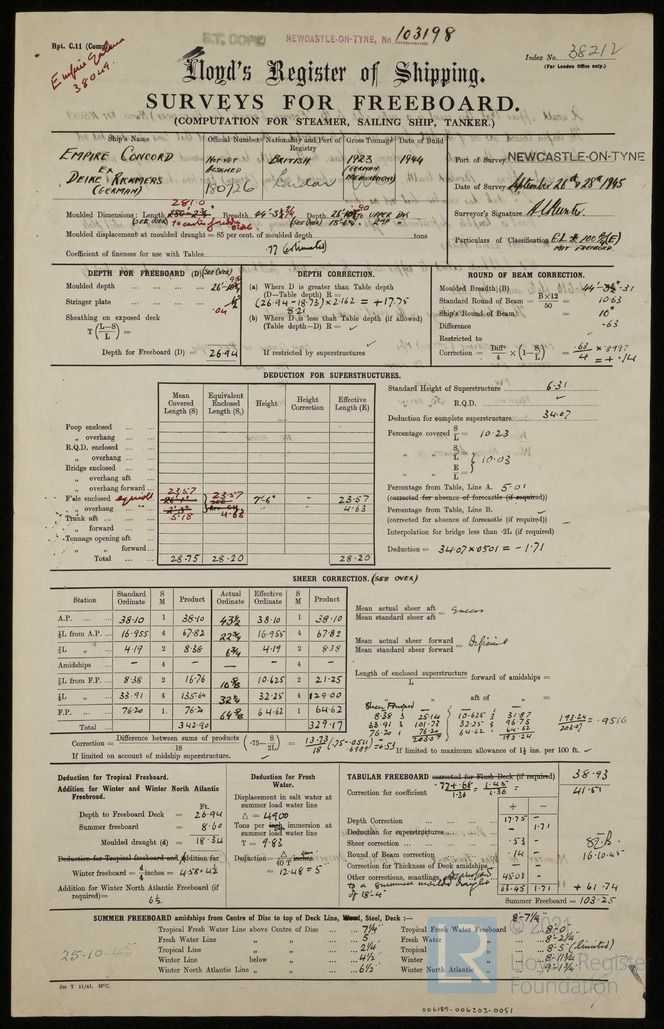 Rpt. C.11 (Comp)
S.T. COPY
NEWCASTLE-ON-TYNE, No 103198
Index No. 38212
(For London Office only.)
38049.
Lloyd's Register of Shipping.
SURVEYS FOR FREEBOARD.
(COMPUTATION FOR STEAMER, SAILING SHIP, TANKER.)
Ship's Name Official Number Nationality and Port of Registry Gross Tonnage Date of Build
EMPIRE CONCORD NOT YET ASSIGNED BRITISH 1923 (GERMAN MEASUREMENT) 1944
EX
DEIKE RICKMERS
(GERMAN)
180726 London
Port of Survey NEWCASTLE-ON-TYNE
Date of Survey September 26th & 28th 1945
Surveyor's Signature
Particulars of Classification
Moulded Dimensions: Length 281.0 Breadth Depth TO UPPER DK
(SEE OVER)
Moulded displacement at moulded draught = 85 per cent. of moulded depth tons
Coefficient of fineness for use with Tables .77 (estimated)
DEPTH FOR FREEBOARD (D) (SEE OVER)
Moulded depth
Stringer plate .04
Sheathing on exposed deck
T(L-S/L)
Depth for Freeboard (D) 26.94
DEPTH CORRECTION.
(a) Where D is greater than Table depth
(D—Table depth) R=
(26.94 - 18.73) x 2.162 = +17.75
8.21
(b) Where D is less than Table depth (if allowed)
(Table depth—D) R =
If restricted by superstructures
ROUND OF BEAM CORRECTION.
Moulded Breadth (B)
Standard Round of Beam = B×12/50 = 10.63
Ship's Round of Beam = 10"
Difference .63
Restricted to
Correction = Diff/4 × (1 - S1/L) = .63/4 x .8997 = + .14
DEDUCTION FOR SUPERSTRUCTURES.
Mean Covered Length (S) Equivalent Enclosed Length (S1) Height Height Correction Effective Length (E)
Poop enclosed
„ overhang
R.Q.D. enclosed
„ overhang
Bridge enclosed
„ overhang aft
„ overhang forward
F'cle enclosed 23.57 23.57 7'-6" 23.57
„ overhang 5.18 4.63 4.63
Trunk aft
„ forward
Tonnage opening aft
„ „ forward
Total 28.75 28.20 28.20
Standard Height of Superstructure 6.31
„ „ R.Q.D.
Deduction for complete superstructure 34.07
Percentage covered S/L = 10.23
„ „ S1/L
E/L = 10.03
Percentage from Table, Line A. 5.01
(corrected for absence of forecastle (if required))
Percentage from Table, Line B.
(corrected for absence of forecastle (if required))
Interpolation for bridge less than ·2L (if required)
Deduction = 34.07 x .0501 = - 1.71
SHEER CORRECTION. (SEE OVER)
Station Standard Ordinate S M Product Actual Ordinate Effective Ordinate S M Product
A.P. 38.10 1 38.10 43½ 38.10 1 38.10
⅙L from A.P. 16.955 4 67.82 22¾ 16.955 4 67.82
⅓L „ 4.19 2 8.38 6¾ 4.19 2 8.38
Amidships — 4 — — — 4 —
⅓L from F.P. 8.38 2 16.76 10⅝ 10.625 2 21.25
⅙L „ 33.91 4 135.64 32¼ 32.25 4 129.00
F.P. 76.20 1 76.20 64⅝ 64.62 1 64.62
Total 342.90 329.17
Mean actual sheer aft
Mean standard sheer aft = Excess
Mean actual sheer forward
Mean standard sheer forward = Deficient
Length of enclosed superstructure/L forward of amidships =
„ aft of „ =
Sheer Forward
8.38 3 25.14 10.625 3 31.87
33.91 3 101.73 32.25 3 96.75
76.20 1 76.20 64.62 1 64.62
203.07 193.24
193.24/203.07 = .9516
Correction = Difference between sums of products/18 (·75 - S/2L) = 13.73/18 (.75-.0511) = +.53
If limited on account of midship superstructure.
If limited to maximum allowance of 1½ ins. per 100 ft.
Deduction for Tropical Freeboard.
Addition for Winter and Winter North Atlantic Freeboard.
Ft.
Depth to Freeboard Deck = 26.94
Summer freeboard = 8.60
Moulded draught (d) = 18.34
Deduction for Tropical freeboard and Addition for
Winter freeboard = d/4 inches = 4.58 = 4½
Addition for Winter North Atlantic Freeboard (if required)= 6½
Deduction for Fresh Water.
Displacement in salt water at summer load water line
Δ = 4900
Tons per inch immersion at summer load water line
T = 9.83
Deduction = Δ/40 T inches
= 12.48 = 5"
TABULAR FREEBOARD corrected for Flush Deck (if required) 38.93
Correction for coefficient = .77+.68/1.36 = 1.45/1.36 = 41.51
+ -
Depth Correction 17.75 -
Deduction for superstructures - 1.71
Sheer correction .53 -
Round of Beam correction .14 -
Correction for Thickness of Deck amidships - -
Other corrections, scantlings, 45.03 -
to a summer moulded draught
of 18'-4"
63.45 1.71 + 61.74
Summer Freeboard = 103.25
16.10.45
SUMMER FREEBOARD amidships from Centre of Disc to top of Deck Line, Wood, Steel, Deck :— 8'-7¼"
Tropical Fresh Water Line above Centre of Disc 7¼"
Fresh Water Line „ „ 5"
Tropical Line „ „ 2¼"
Winter Line below „ 4½"
Winter North Atlantic Line „ „ 6½"
Tropical Fresh Water Freeboard 8'-0"
Fresh Water „ 8'-2¼"
Tropical „ 8'-5" (limited)
Winter „ 8'-11¾"
Winter North Atlantic „ 9'-1¾"
25.10.45
5m T 11/41. M'C.
006189-006203-0051
LR
© 2021
Lloyd's Register
Foundation